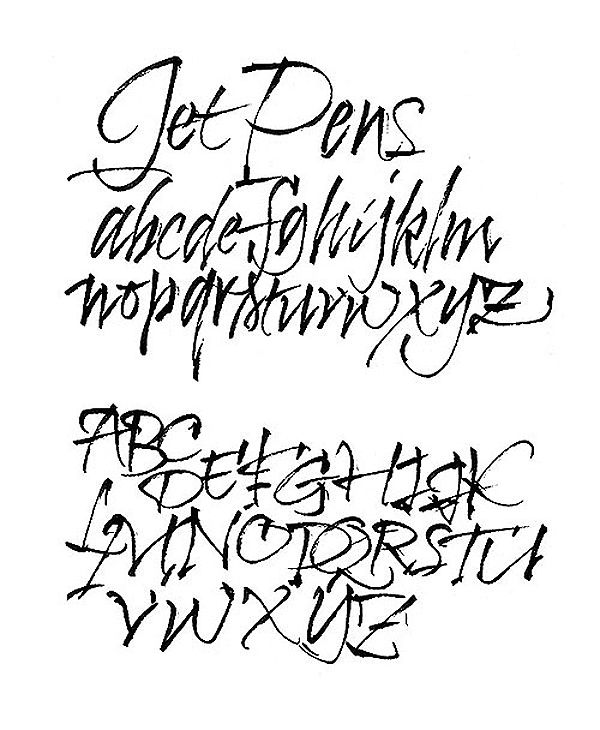 Jet Pens
abcdefghijklm
nopqrstuvwxyz
ABC
DEFGHIJK
LMNOPQRSTU
VWXYZ